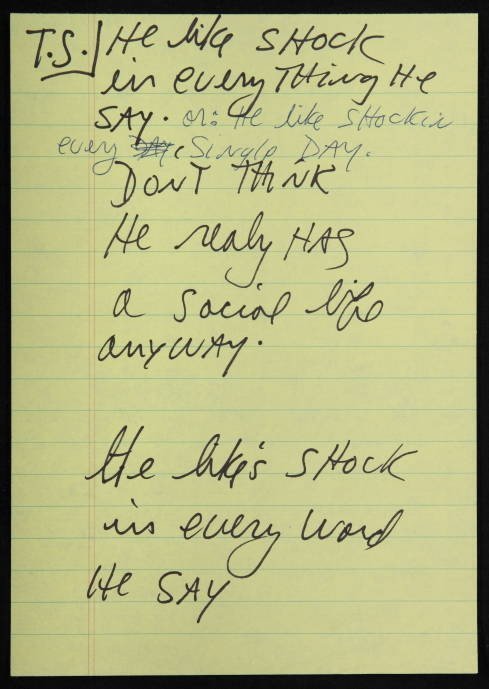 T.S. He like SHOCK
in everyTHing He
SAY. or: He like SHockin
every Single DAY.
DONT THINK
He realy HAS
a social life
anyWAY.
He like's SHOCK
in every Word
He SAY